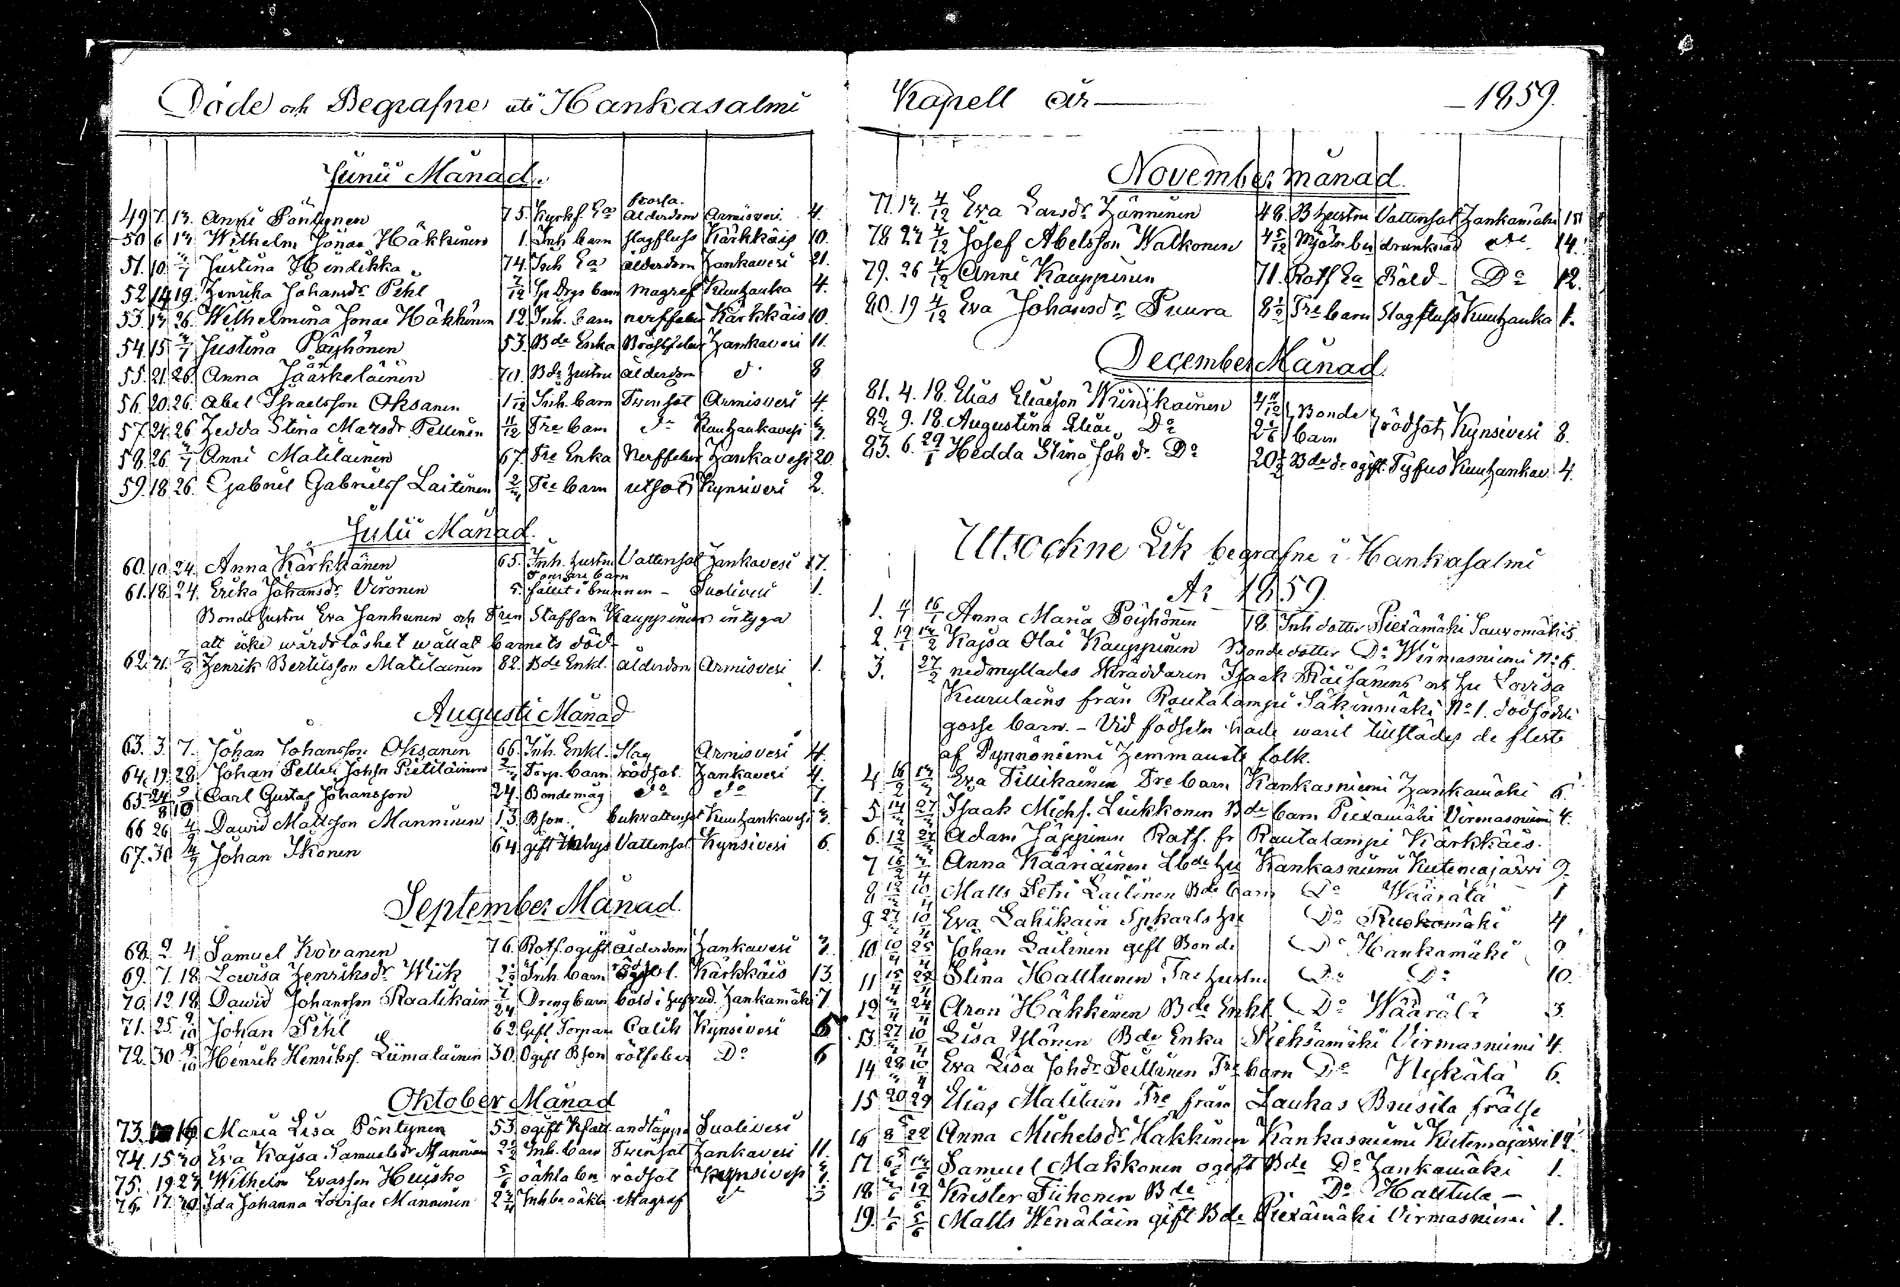 Döde och Begrafne uti Hankasalmi
Junii Månad.
49. 7. 13. Anni Pöntynen 75. Kyrkf. Ea Ålderdom Armisvesi 4.
50 6 13. Wilhelm Jonae Häkkinen 1. Inh. barn slagfluss Kärkkäis 10.
51. 10. Justina Hindikka 74. Inh Ea ålderdom Hankavesi 21.
52 14 19. Henrika Johansdr Pihl magref Kuuhanka 4.
53. 13. 26. Wilhelmina Jonae Häkkinen 12. Inh. barn nerffeber Kärkkäis 10.
54. 15 Justina Pöyhönen 53. Bde Enka Bröstfeber Hankavesi 11.
55. 21. 26. Anna Jääskeläinen 70. Bde hustru ålderdom do 8
56. 20. 26. Abel Israelsson Oksanen 1/12 Inh. barn Twinsot Armisvesi 4.
57. 24. 26 Hedda Stina Matsdr Pellinen 11/12 Tre barn do Kuuhankavesi
58. 26. Anni Matilainen 67. Tre Enka Nerffeber Hankavesi 20.
59. 18 26. Gabriel Gabrielsf Laitinen Tre barn utsot Kynsivesi 2.
Julii Månad.
60. 10. 24. Anna Kärkkänen 65. Inh. hustru Vattensot Hankavesi 17.
61. 18. 24. Erika Johansdr Vironen 5. fallit i brunnen – Suolivesi 1.
Bonde hustru Eva Janhunen och Tren Staffan Kauppinen intyga
att icke wårdslöshet wållat barnets död –
62. 31. 7/8 Henrik Bertilsson Matilainen 82. Bde Enkl. ålderdom Armisvesi 1.
Augusti Månad
63. 3. 7. Johan Johansson Oksanen 66. Inh. Enkl. Slag Armisvesi 4.
64. 19. 28 Johan Petter Johsn Pietiläinen Torp. barn rödsot Hankavesi 4.
65. Carl Gustaf Johansson 24. Bondemåg do do 7.
66 26 Dawid Mattsson Manninen 13. Bson. bukvattensot Kuuhankavesi 3.
67. 30 Johan Ikonen 64. gift Inhys Vattensot Kynsivesi 6.
September Månad.
68. 2 4 Samuel Kovanen 76. Rotf. ogift ålderdom Hankavesi 3.
69. 7. 18 Lowisa Henriksdr Wiik Inh. barn Kärkkäis 13.
70. 12 18 Dawid Johansson Raatikain Dreng barn böld i hufvud. Hankamäki 7
71. 25. Johan Pihl 62. Gift Torpare Colik Kynsivesi 6
72. 30 9/10 Henrik Henriksf. Liimatainen 30. Ogift Bson rötfeber Do 6
Oktober Månad
73. Maria Lisa Pöntynen 53. ogift andtäppa Suolivesi
74. 15 30 Eva Kajsa Samuelsdr Manninen Inh. barn Twinsot Hankavesi 11.
75. 19 23. Wilhelm Evasson Huisko oäkta bn rödsot Kynsivesi
17. 30 Ida Johanna Lovisae Manninen Inh be oäkta Magref do 3
Kapell år — 1859.
November månad.
77. 13. 4/12 Eva Larsdr Hänninen 48. B hustru Vattensot Hankamäki 15
78 27 4/12 Josef Abelsson Walkonen drunknad do 14.
79. 26 4/12 Anni Kauppinen 71. Rotf Ea Böld – Do 12.
80. 19 4/12 Eva Johansdr Puura 8½ Tre barn Slagfluss Kuuhanka 1.
December Månad
81. 4. 18. Elias Eliaeson Wiinikainen Bonde rödsot Kynsivesi 8.
82. 9. 18. Augustina Eliae Do barn
83. 6. 29/1 Hedda Stina Joh dr Do 20½ Bde dr ogift Tyfus Kuuhankav. 4.
Utsockne Lik begrafne i Hankasalmi
År 1859.
1. 16/1 Anna Maria Pöyhönen 18 Inh dotter Piexämäki Sauvomäki 5.
2. Kajsa Olai Kauppinen Bonde dotter Do Wirmasniemi No 6.
3. 27/2 nedmyllades Skräddaren Isaak Räisänens och hu Lovisa
Keurulains från Rautalampi Säkinmäki No 1. dödfödde
gosse barn. – Vid födseln hade warit tillstädes de fleste
af Pynnöniemi Hemmanets folk.
4 Eva Tillikainen Tre barn Kankasniemi Hankamäki 6.
5 Isaak Michs. Liukkonen Bde barn Piexämäki Virmasniemi 4.
6. Adam Jäppinen Rotf. fr Rautalampi Kärkkäis.
7 Anna Kääriäinen Lbde hu Kankasniemi Kutemajärvi 9.
8 Matts Petri Laitinen Bde barn Do Wäärälä 1
9. Eva Lahikain Spkarls hu Do Ruokomäki 4
10 Johan Laitinen gift Bonde Do Hankamäki 9
11 Stina Halttunen Tre hustru Do Do 10.
12 Aron Häkkinen Bde Enkl Do Wäärälä 3.
13. Lisa Ylönen Bde Enka Pieksämäki Virmasniemi 4.
14 Eva Lisa Joh dr Teittinen Tre barn Do Nykälä 6.
15 20 29 Elias Matilain Tre från Laukas Brusila frälse
16 8 22 Anna Michelsdr Häkkinen Kankasniemi Kutemajärvi 12.
17 Samuel Makkonen ogift Bde Do Hankamäki 1.
18 Krister Tiihonen Bde Do Halttula –
19. Matts Wenäläin gift Bde Piexämäki Virmasniemi 1.